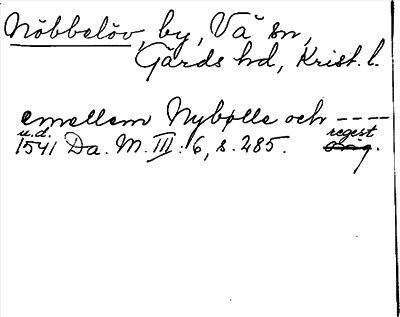 Nöbbelöv, by, Vä sn,
Gärds hd, Krist. l.
emellem Nybølle och ----
u.d. regist
1541 Da. M. III: 6, s. 285. orig.